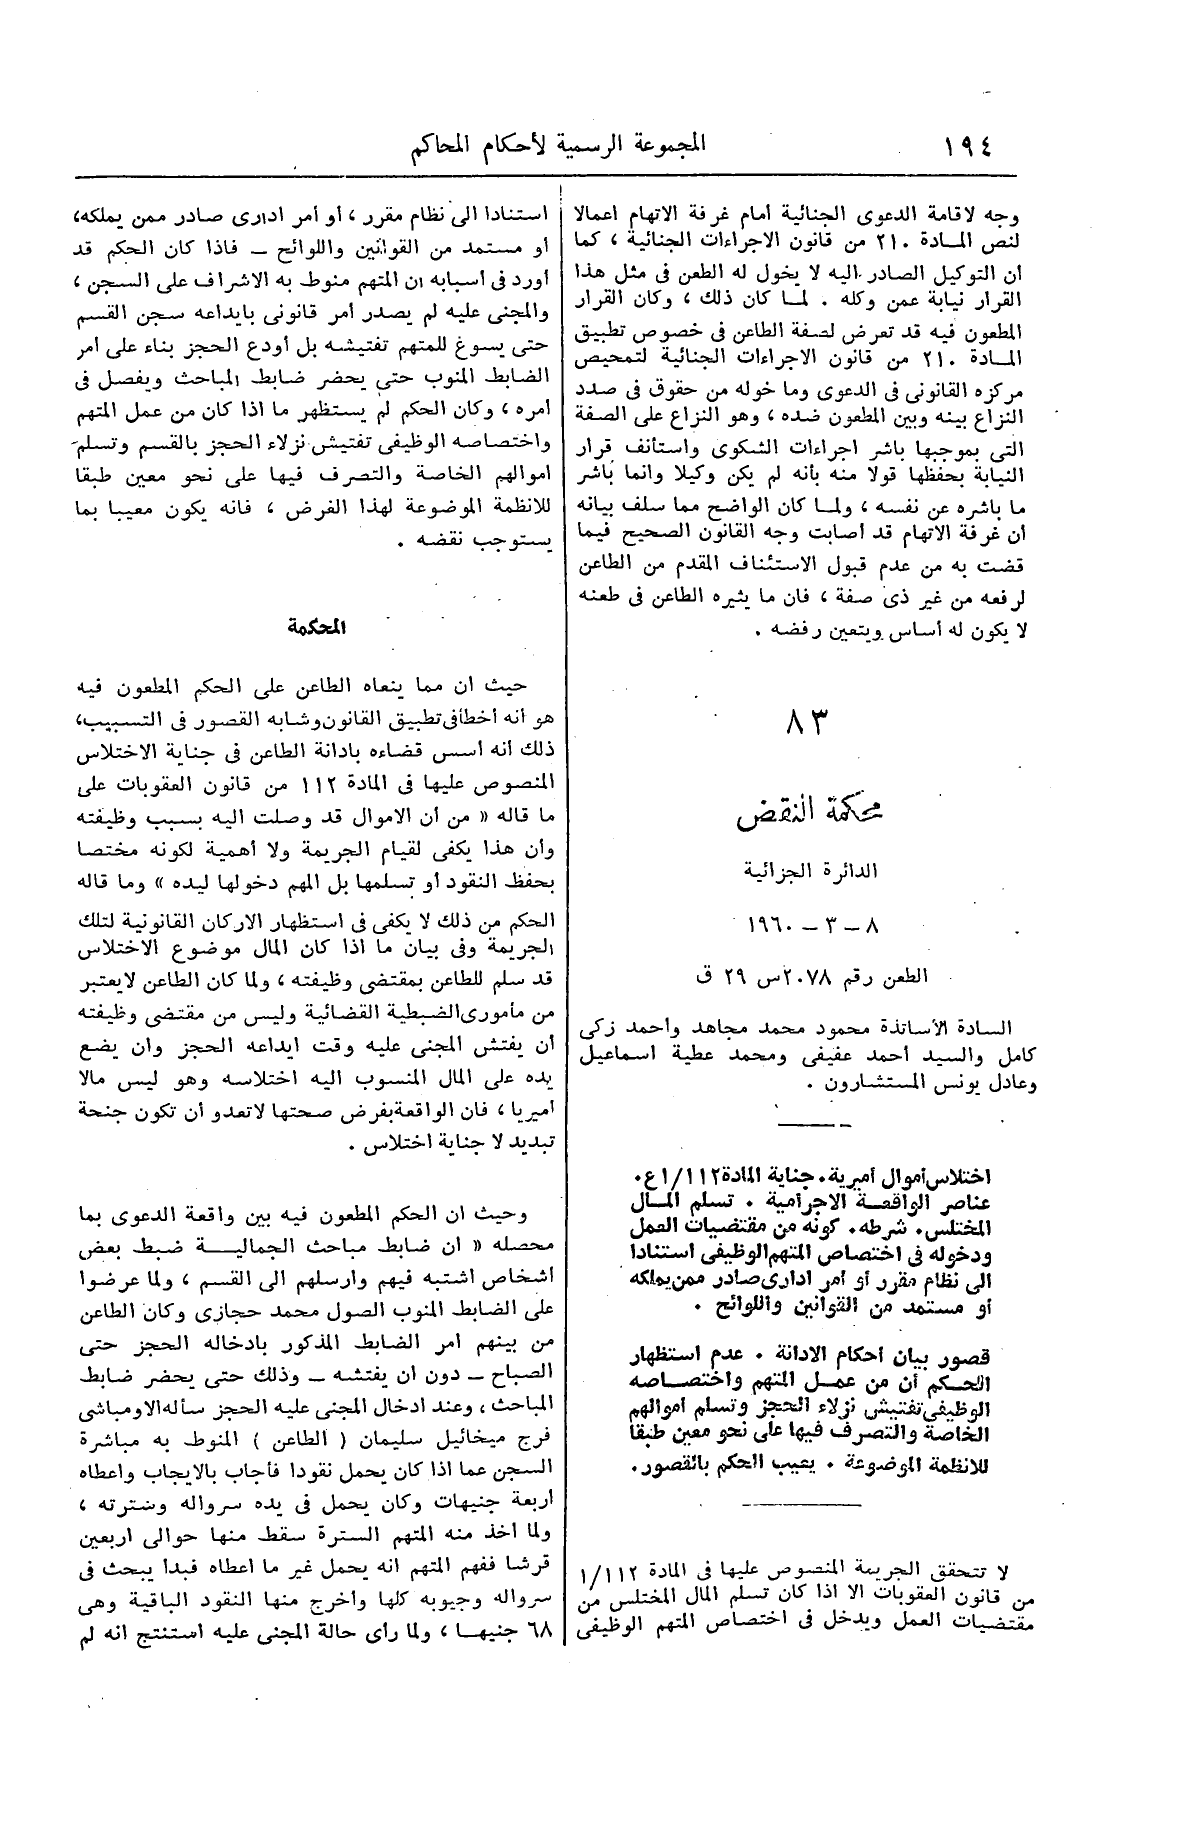 ١٩٤
المجموعة الرسمية لأحكام المحاكم
وجه لاقامة الدعوى الجنائية أمام غرفة الاتهام اعمالا
لنص المادة ٢١٠ من قانون الاجراءات الجنائية ، كما
أن التوكيل الصادر اليه لا يخول له الطعن فى مثل هذا
القرار نيابة عمن وكله . لما كان ذلك ، وكان القرار
المطعون فيه قد تعرض لصفة الطاعن فى خصوص تطبيق
المادة ٢١٠ من قانون الاجراءات الجنائية لتمحيص
مركزه القانونى فى الدعوى وما خوله من حقوق فى صدد
النزاع بينه وبين المطعون ضده ، وهو النزاع على الصفة
التى بموجبها باشر اجراءات الشكوى واستأنف قرار
النيابة بحفظها قولا منه بأنه لم يكن وكيلا وانما باشر
ما باشره عن نفسه ، ولما كان الواضح مما سلف بيانه
أن غرفة الاتهام قد أصابت وجه القانون الصحيح فيما
قضت به من عدم قبول الاستئناف المقدم من الطاعن
لرفعه من غير ذى صفة ، فان ما يثيره الطاعن فى طعنه
لا يكون له أساس ويتعين رفضه .
٨٣
محكمة النقض
الدائرة الجزائية
٨ – ٣ – ١٩٦٠
الطعن رقم ٢٠٧٨س ٢٩ ق
السادة الأساتذة محمود محمد مجاهد وأحمد زكى
كامل والسيد أحمد عفيفى ومحمد عطية اسماعيل
وعادل يونس المستشارون .
اختلاس أموال أميرية . جناية المادة ١/١١٢ع .
عناصر الواقعة الاجرامية . تسلم المال
المختلس . شرطه . كونه من مقتضيات العمل
ودخوله فى اختصاص المتهم الوظيفى استنادا
الى نظام مقرر أو أمر ادارى صادر ممن يملكه
أو مستمد من القوانين واللوائح .
قصور بيان أحكام الادانة . عدم استظهار
الحكم أن من عمل المتهم واختصاصه
الوظيفى تفتيش نزلاء الحجز وتسلم أموالهم
الخاصة والتصرف فيها على نحو معين طبقا
للانظمة الموضوعة . يعيب الحكم بالقصور .
لا تتحقق الجريمة المنصوص عليها فى المادة ١/١١٢
من قانون العقوبات الا اذا كان تسلم المال المختلس من
مقتضيات العمل ويدخل فى اختصاص المتهم الوظيفى
استنادا الى نظام مقرر ، أو أمر ادارى صادر ممن يملكه،
أو مستمد من القوانين واللوائح – فاذا كان الحكم قد
أورد فى أسبابه ان المتهم منوط به الاشراف على السجن ،
والمجنى عليه لم يصدر أمر قانونى بايداعه سجن القسم
حتى يسوغ للمتهم تفتيشه بل أودع الحجز بناء على أمر
الضابط المنوب حتى يحضر ضابط المباحث ويفصل فى
أمره ، وكان الحكم لم يستظهر ما اذا كان من عمل المتهم
واختصاصه الوظيفى تفتيش نزلاء الحجز بالقسم وتسلم
اموالهم الخاصة والتصرف فيها على نحو معين طبقا
للانظمة الموضوعة لهذا الغرض ، فانه يكون معيبا بما
يستوجب نقضه .
المحكمة
حيث ان مما ينعاه الطاعن على الحكم المطعون فيه
هو أنه أخطأ فى تطبيق القانون وشابه القصور فى التسبيب،
ذلك أنه أسس قضاءه بادانة الطاعن فى جناية الاختلاس
المنصوص عليها فى المادة ١١٢ من قانون العقوبات على
ما قاله « من أن الاموال قد وصلت اليه بسبب وظيفته
وأن هذا يكفى لقيام الجريمة ولا أهمية لكونه مختصا
بحفظ النقود أو تسلمها بل المهم دخولها ليده » وما قاله
الحكم من ذلك لا يكفى فى استظهار الاركان القانونية لتلك
الجريمة وفى بيان ما اذا كان المال موضوع الاختلاس
قد سلم للطاعن بمقتضى وظيفته ، ولما كان الطاعن لايعتبر
من مأمورى الضبطية القضائية وليس من مقتضى وظيفته
أن يفتش المجنى عليه وقت ايداعه الحجز وان يضع
يده على المال المنسوب اليه اختلاسه وهو ليس مالا
أميريا ، فان الواقعة بفرض صحتها لاتعدو أن تكون جنحة
تبديد لا جناية اختلاس .
وحيث ان الحكم المطعون فيه بين واقعة الدعوى بما
محصله « ان ضابط مباحث الجمالية ضبط بعض
أشخاص اشتبه فيهم وارسلهم الى القسم ، ولما عرضوا
على الضابط المنوب الصول محمد حجازى وكان الطاعن
من بينهم امر الضابط المذكور بادخاله الحجز حتى
الصباح – دون ان يفتشه – وذلك حتى يحضر ضابط
المباحث ، وعند ادخال المجنى عليه الحجز سأله الاومباشى
فرج ميخائيل سليمان ( الطاعن ) المنوط به مباشرة
السجن عما اذا كان يحمل نقودا فأجاب بالايجاب واعطاه
أربعة جنيهات وكان يحمل فى يده سرواله وسترته ،
ولما أخذ منه المتهم السترة سقط منها حوالى اربعين
قرشا ففهم المتهم انه يحمل غير ما اعطاه فبدأ يبحث فى
سرواله وجيوبه كلها وأخرج منها النقود الباقية وهى
٦٨ جنيها ، ولما رأى حالة المجنى عليه استنتج انه لم